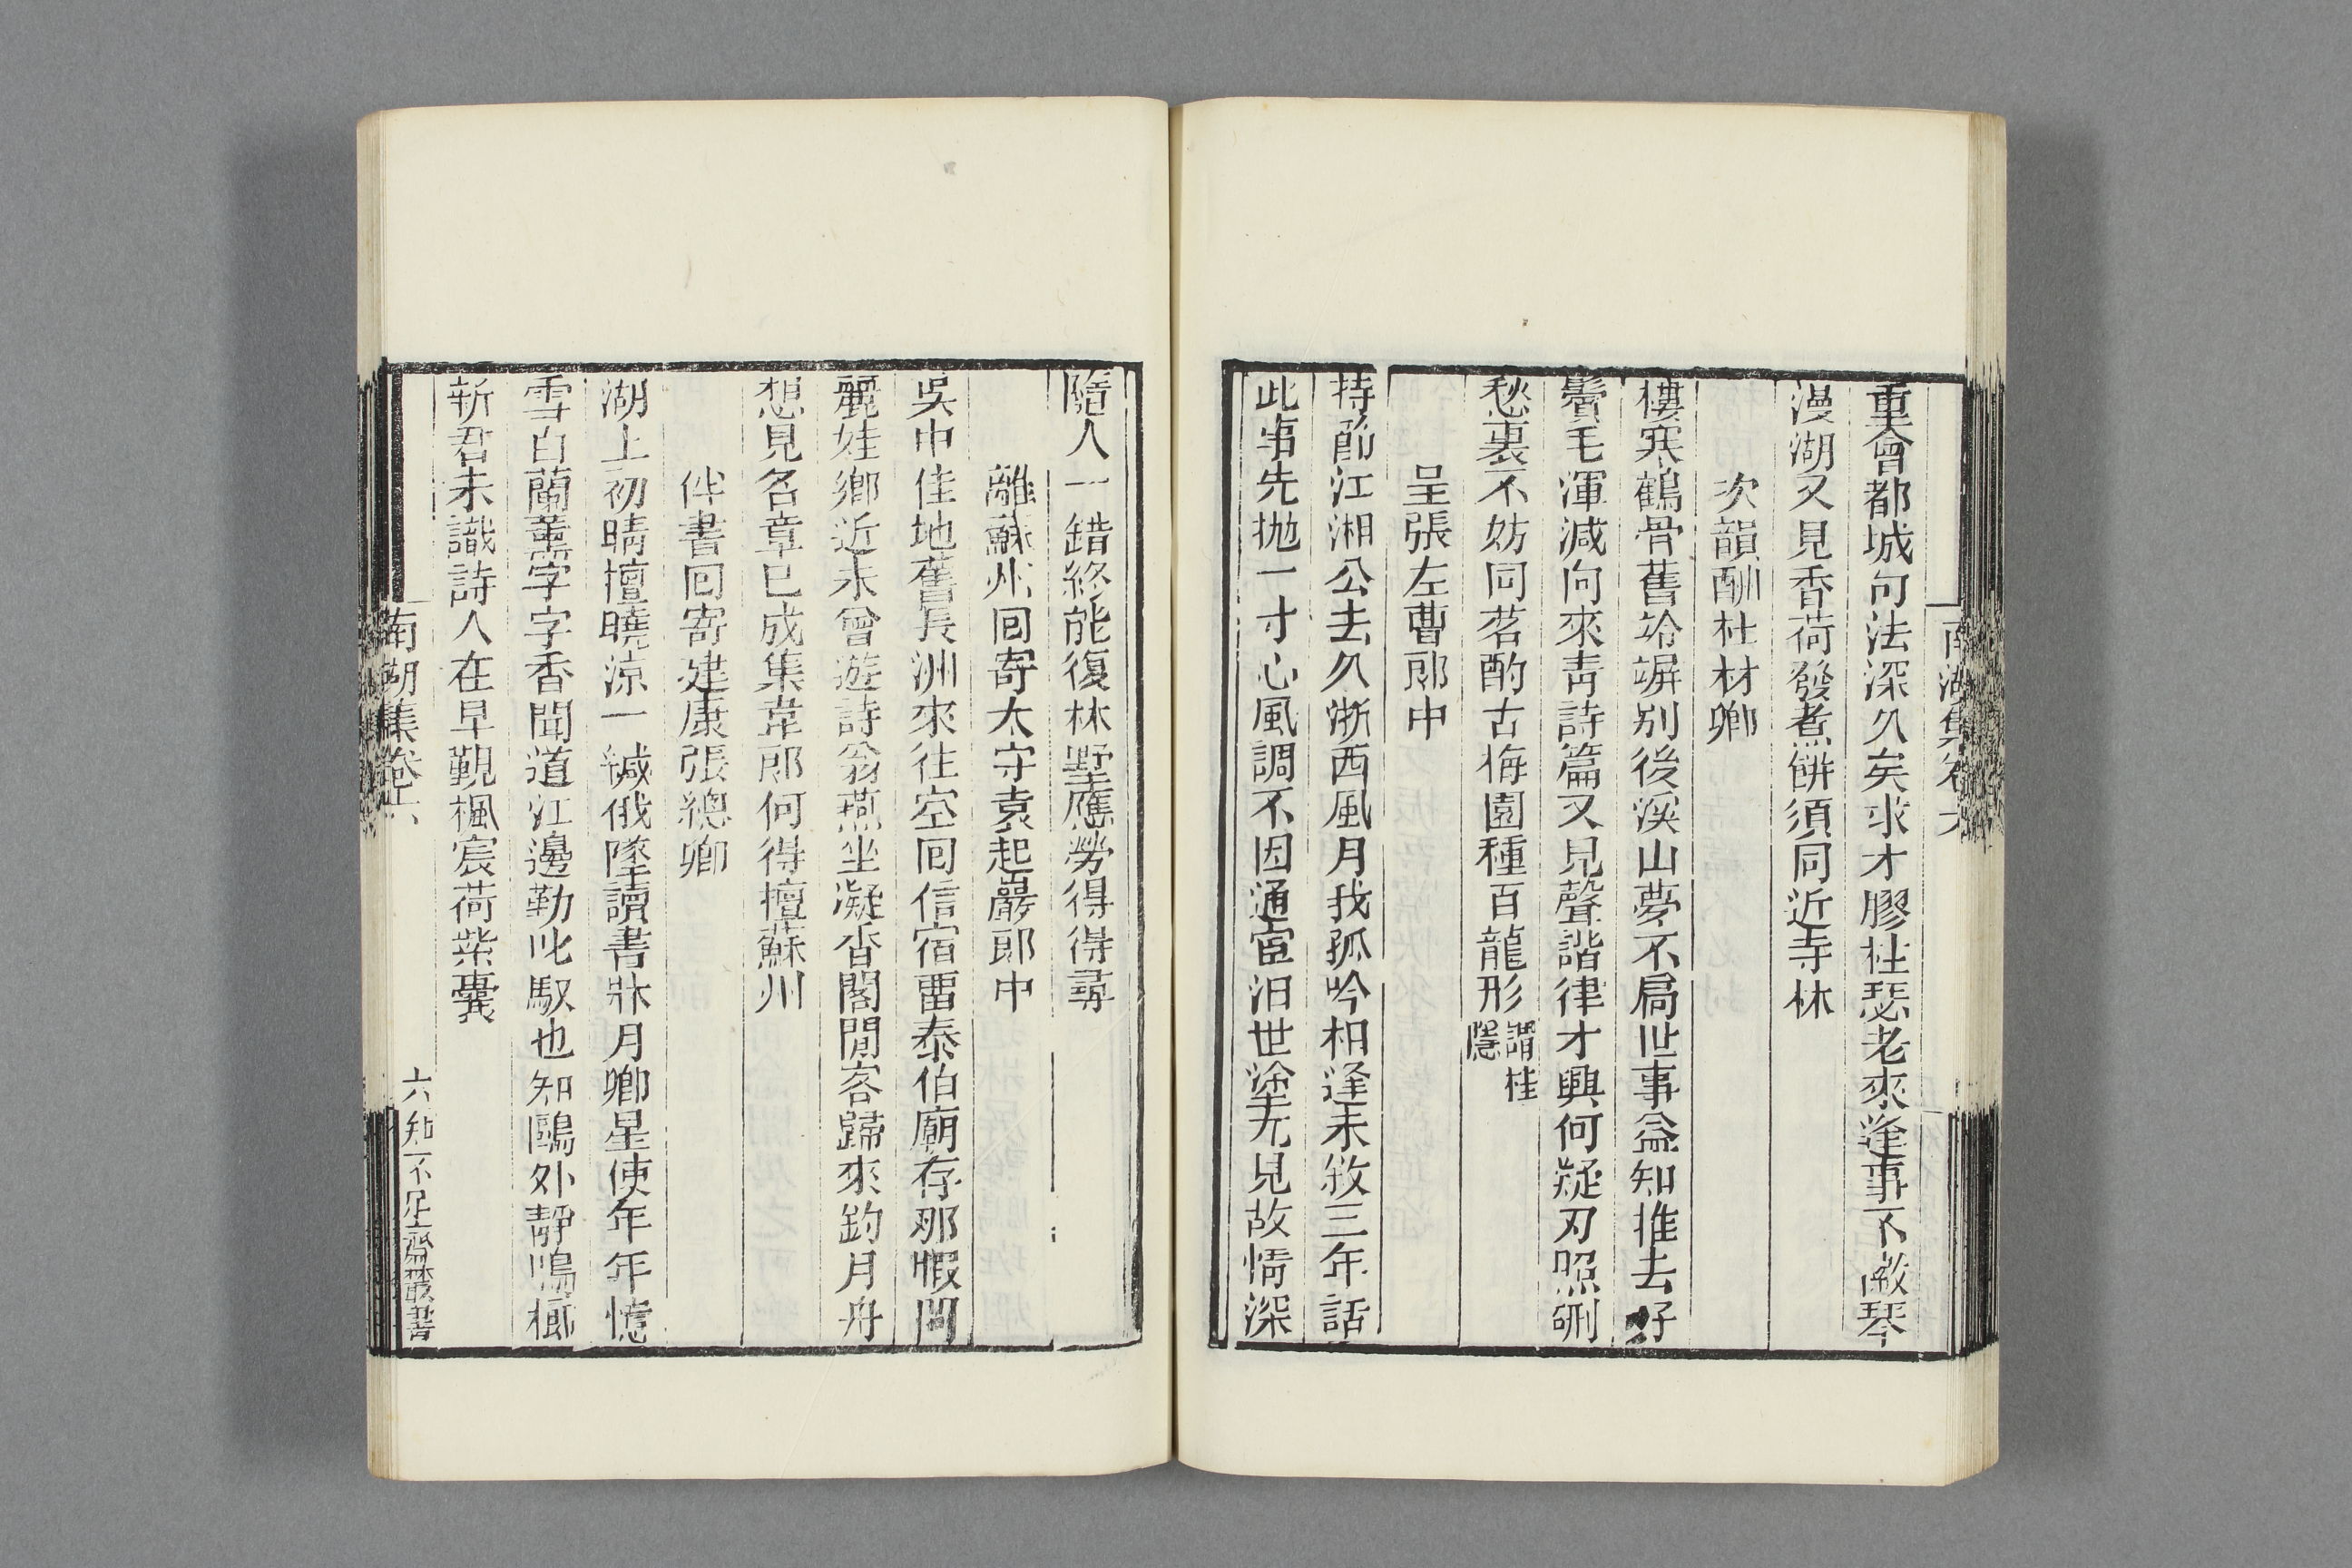 重會都城句法深久矣求才膠柱瑟老來逢事不敵琴
漫湖又見香荷發煮餅須同近寺林
次韻酬杜材卿
樓寒鶴骨舊竛竮別後溪山夢不扃世事益知推去好
鬢毛渾減向來靑詩篇又見聲諧律才興何疑刃照硎
愁裏不妨同茗酌古梅園種百龍形謂桂隱
呈張左曹郎中
持節江湘公去久浙西風月我孤吟相逢未敘三年話
此事先抛一寸心風調不因通宦汨世塗尤見故情深
隨人一錯終能復林墅應勞得得尋
離蘇州回寄太守袁起巖郎中
吳中佳地舊長洲來往空回信宿畱泰伯廟存那暇問
麗娃鄉近未曾遊詩翁燕坐凝香閣閒客歸來釣月舟
想見名章已成集韋郎何得擅蘇州
伴書回寄建康張總卿
湖上初晴擅曉涼一緘俄墜讀書牀月卿星使年年憶
雪白蘭薰字字香聞道江邊勒叱馭也知鷗外靜鳴榔
新君未識詩人在早覲楓宸荷紫囊
南湖集卷六
六 知不足齋叢書